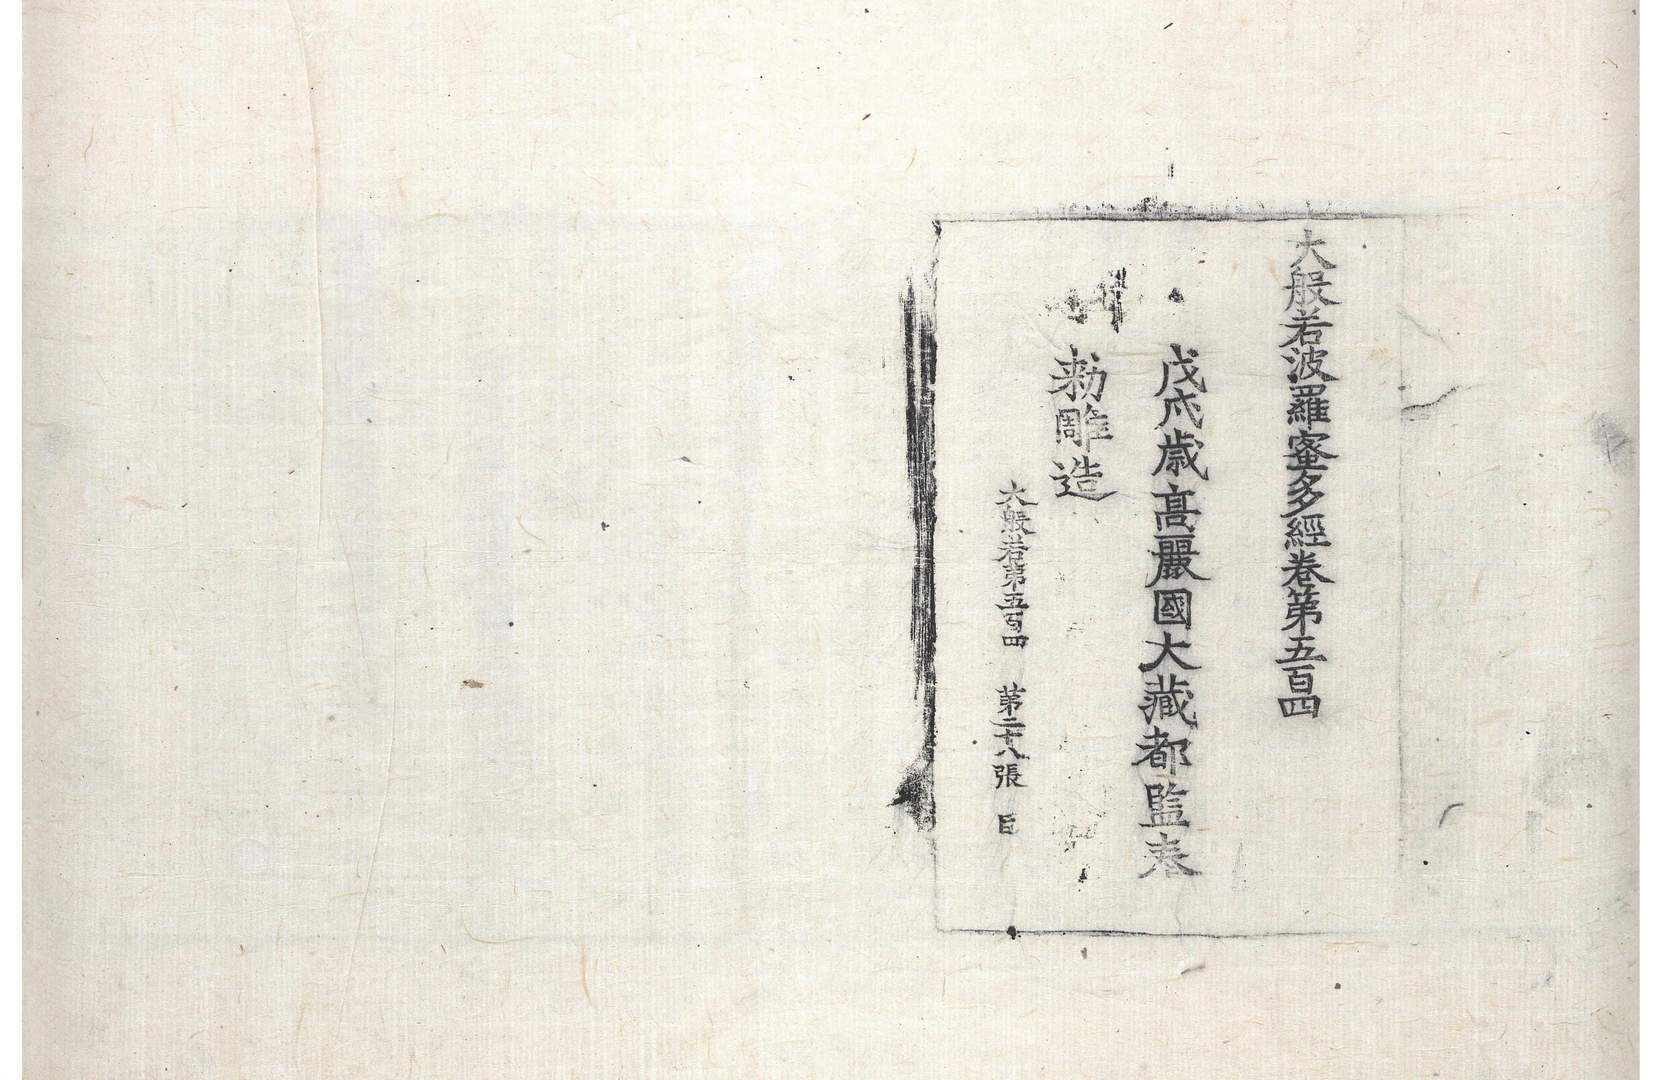 大般若波羅蜜多經卷第五百四
戊戌歲高麗國大藏都監奉
勑雕造
大般若第五百四 第二十八張 日